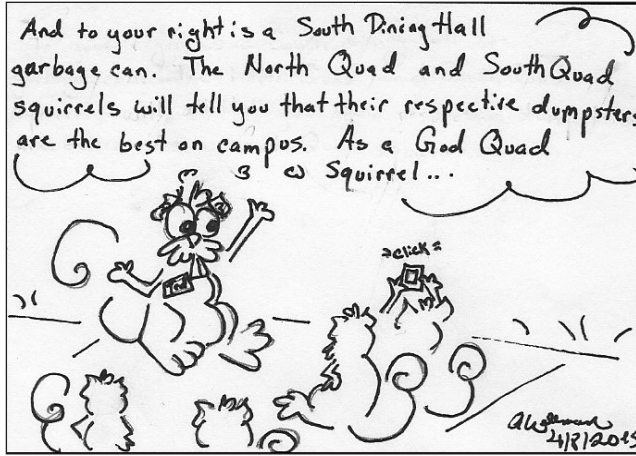 And to your right is a South Dining Hall
garbage can. The North Quad and South Quad
squirrels will tell you that their respective dumpsters
are the best on campus. As a God Quad
Squirrel...
=click=